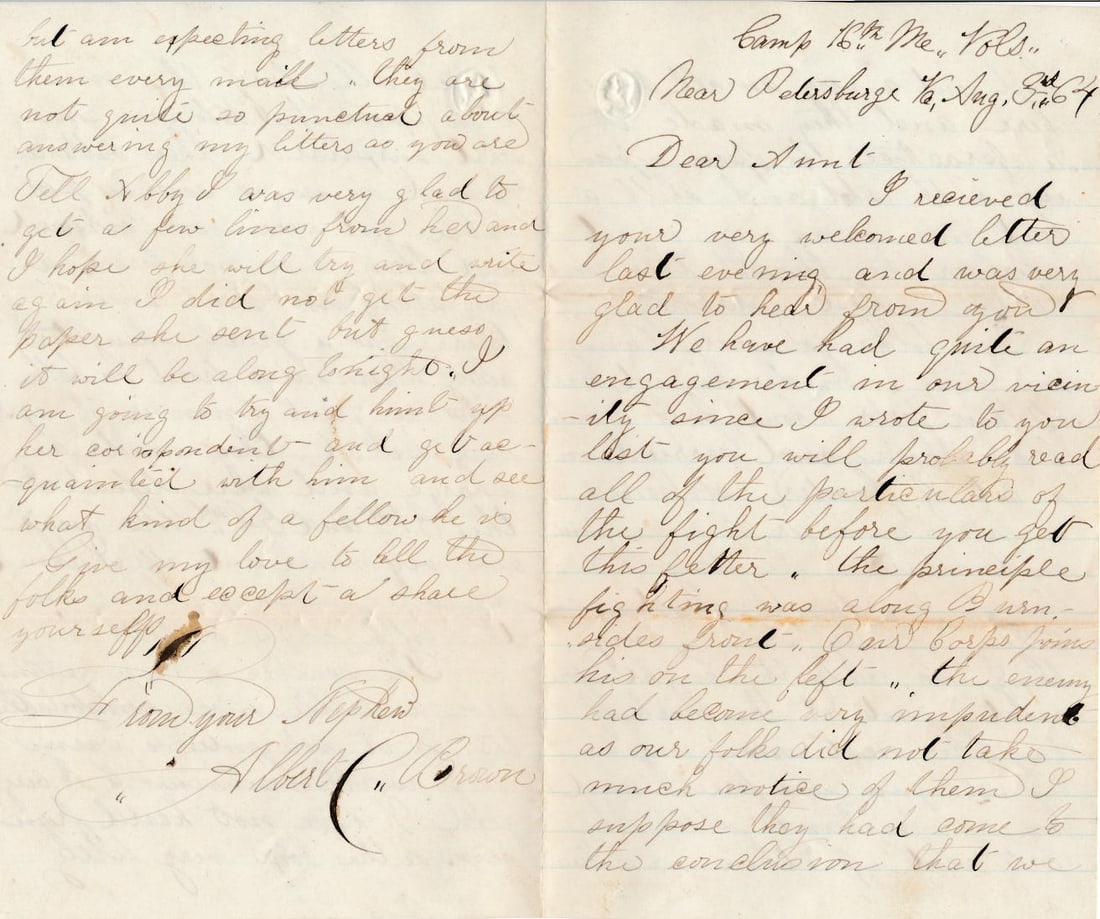 but am expecting letters from
them every mail „ they are
not quite so punctual about
answering my letters as you are
Tell Abby I was very glad to
get a few lines from her and
I hope she will try and write
again I did not get the
paper she sent but guess
it will be along tonight. I
am going to try and hunt up
her corispondent and get ac-
quainted with him and see
what kind of a fellow he is
Give my love to all the
folks and except a share
yourself
From your Nephew
Albert C„ Brown
Camp 16„th Me„ Vols„
Near Petersburge Va, Aug, 3„rd 64
Dear Aunt
I recieved
your very welcomed letter
last evening and was very
glad to hear from you
We have had quite an
engagement in our vicin
-ity since I wrote to you
last you will probably read
all of the particulars of
the fight before you get
this letter „ the principle
fighting was along Burn-
sides front „ Our Corps joins
his on the left „ the enemy
had become very impudent
as our folks did not take
much notice of them I
suppose they had come to
the conclusion that we